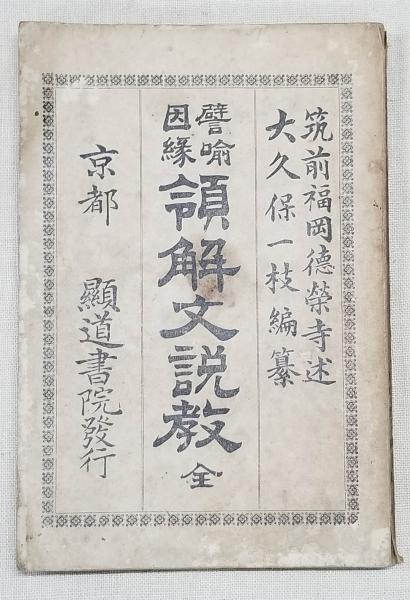 筑前福岡德榮寺述
大久保一枝編纂
譬喩
因緣
領解文説教 全
京都 顯道書院發行